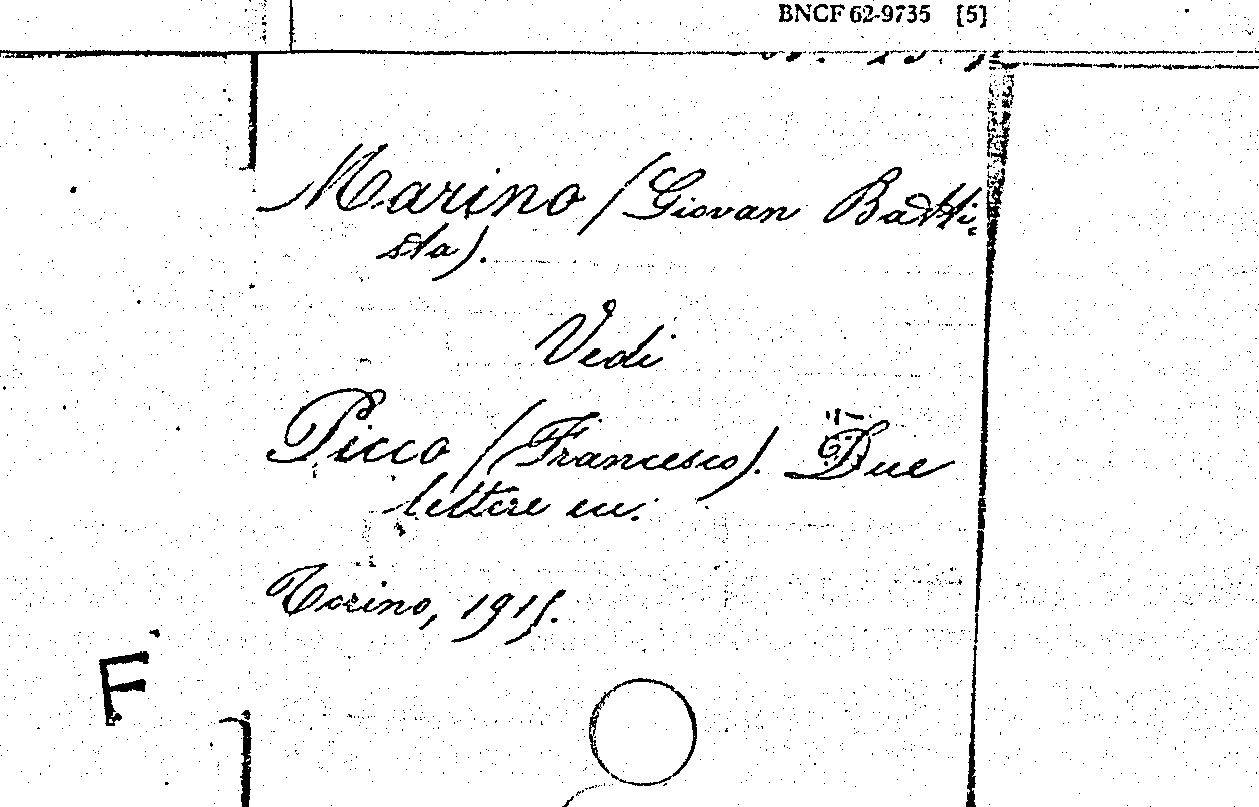 BNCF 62-9735 [5]
Marino (Giovan Batti-
sta).
Vedi
Picco (Francesco). Due
lettere
Torino, 1915.
F